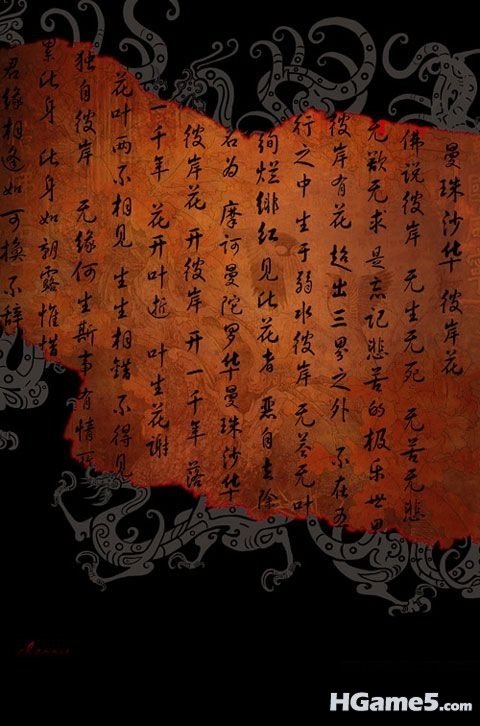 曼珠沙华 彼岸花
佛说彼岸 无生无死 无苦无悲
无欲无求 是忘记悲苦的极乐世界
彼岸有花 超出三界之外 不在五
行之中 生于弱水彼岸 无茎无叶
绚烂绯红 见此花者 恶自去除
名为 摩诃曼陀罗华曼珠沙华
彼岸花 开彼岸 开一千年 落
一千年 花开叶逝 叶生花谢
花叶两不相见 生生相错 不得见
独自彼岸 无缘何生斯事有情
累此身 此身如朝露惟惜
君缘相逢如可换不辞
HGame5.com